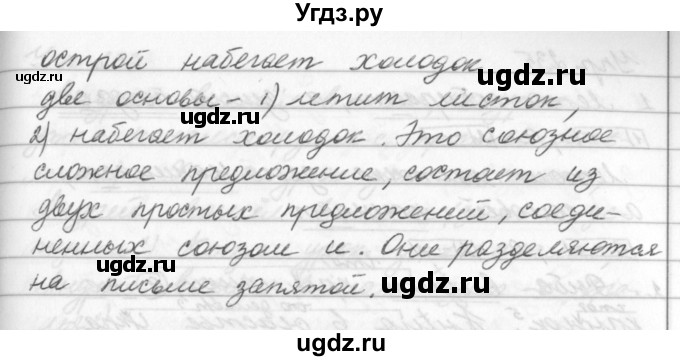 Угдз.ру
острой набегает холодок
ugdz.ru
ugdz.ru
две основы - 1) летит листок,
2) набегает холодок. Это союзное
сложное предложение, состоит из
ugdz.ru
двух простых предложений, соеди-
ненных союзом и. Они разделяются
ugdz.ru
на письме запятой.
ugdz.ru